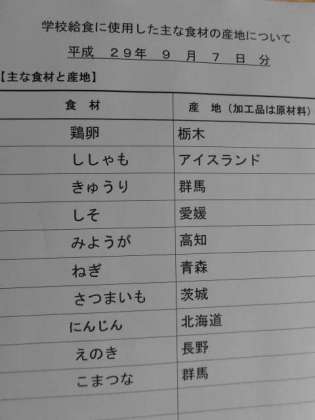 学校給食に使用した主な食材の産地について
平成 29年 9月 7日分
【主な食材と産地】
食材 産地（加工品は原材料）
鶏卵 栃木
ししゃも アイスランド
きゅうり 群馬
しそ 愛媛
みょうが 高知
ねぎ 青森
さつまいも 茨城
にんじん 北海道
えのき 長野
こまつな 群馬